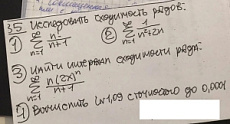 35 Исследовать сходимость рядов:
1) ∑ n=1 ∞ n/(n+1) 2) ∑ n=1 ∞ 1/(n²+2n)
3) Найти интервал сходимости ряда:
∑ n=1 ∞ n(2x)ⁿ/(n+1)
4) Вычислить ln 1,09 с точностью до 0,0001